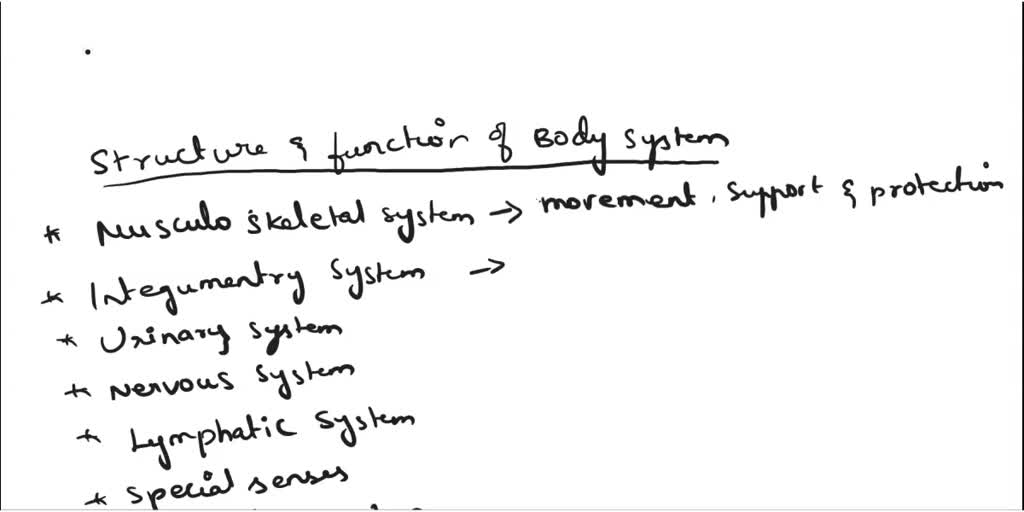 Structure & function of Body System
* Musculo skeletal system → movement, support & protection
* Integumentry System →
* Urinary system
* Nervous System
* Lymphatic System
* Special senses